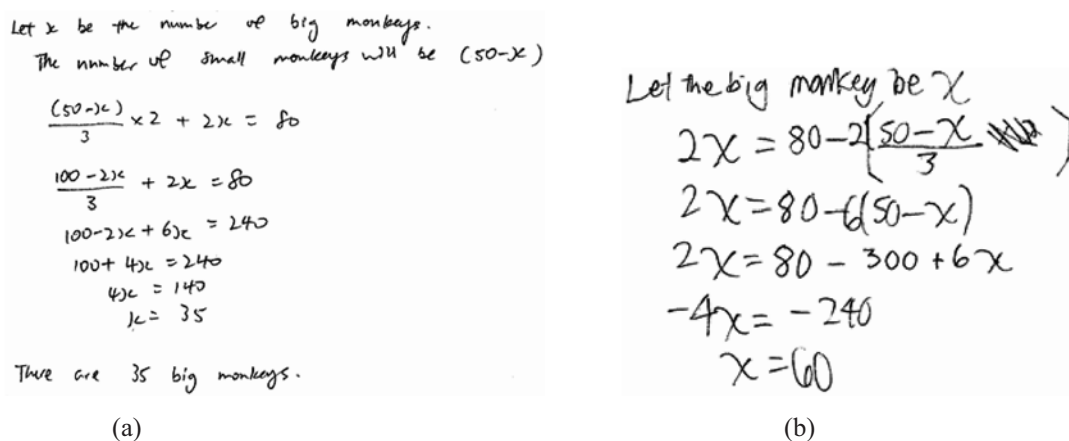 Let x be the number of big monkeys.
The number of small monkeys will be (50-x)
(50-x)/3 × 2 + 2x = 80
100-2x/3 + 2x = 80
100-2x+6x = 240
100+4x = 240
4x = 140
x = 35
There are 35 big monkeys.
(a)
Let the big monkey be x
2x = 80-2(50-x/3)
2x=80-6(50-x)
2x=80-300+6x
-4x=-240
x=60
(b)